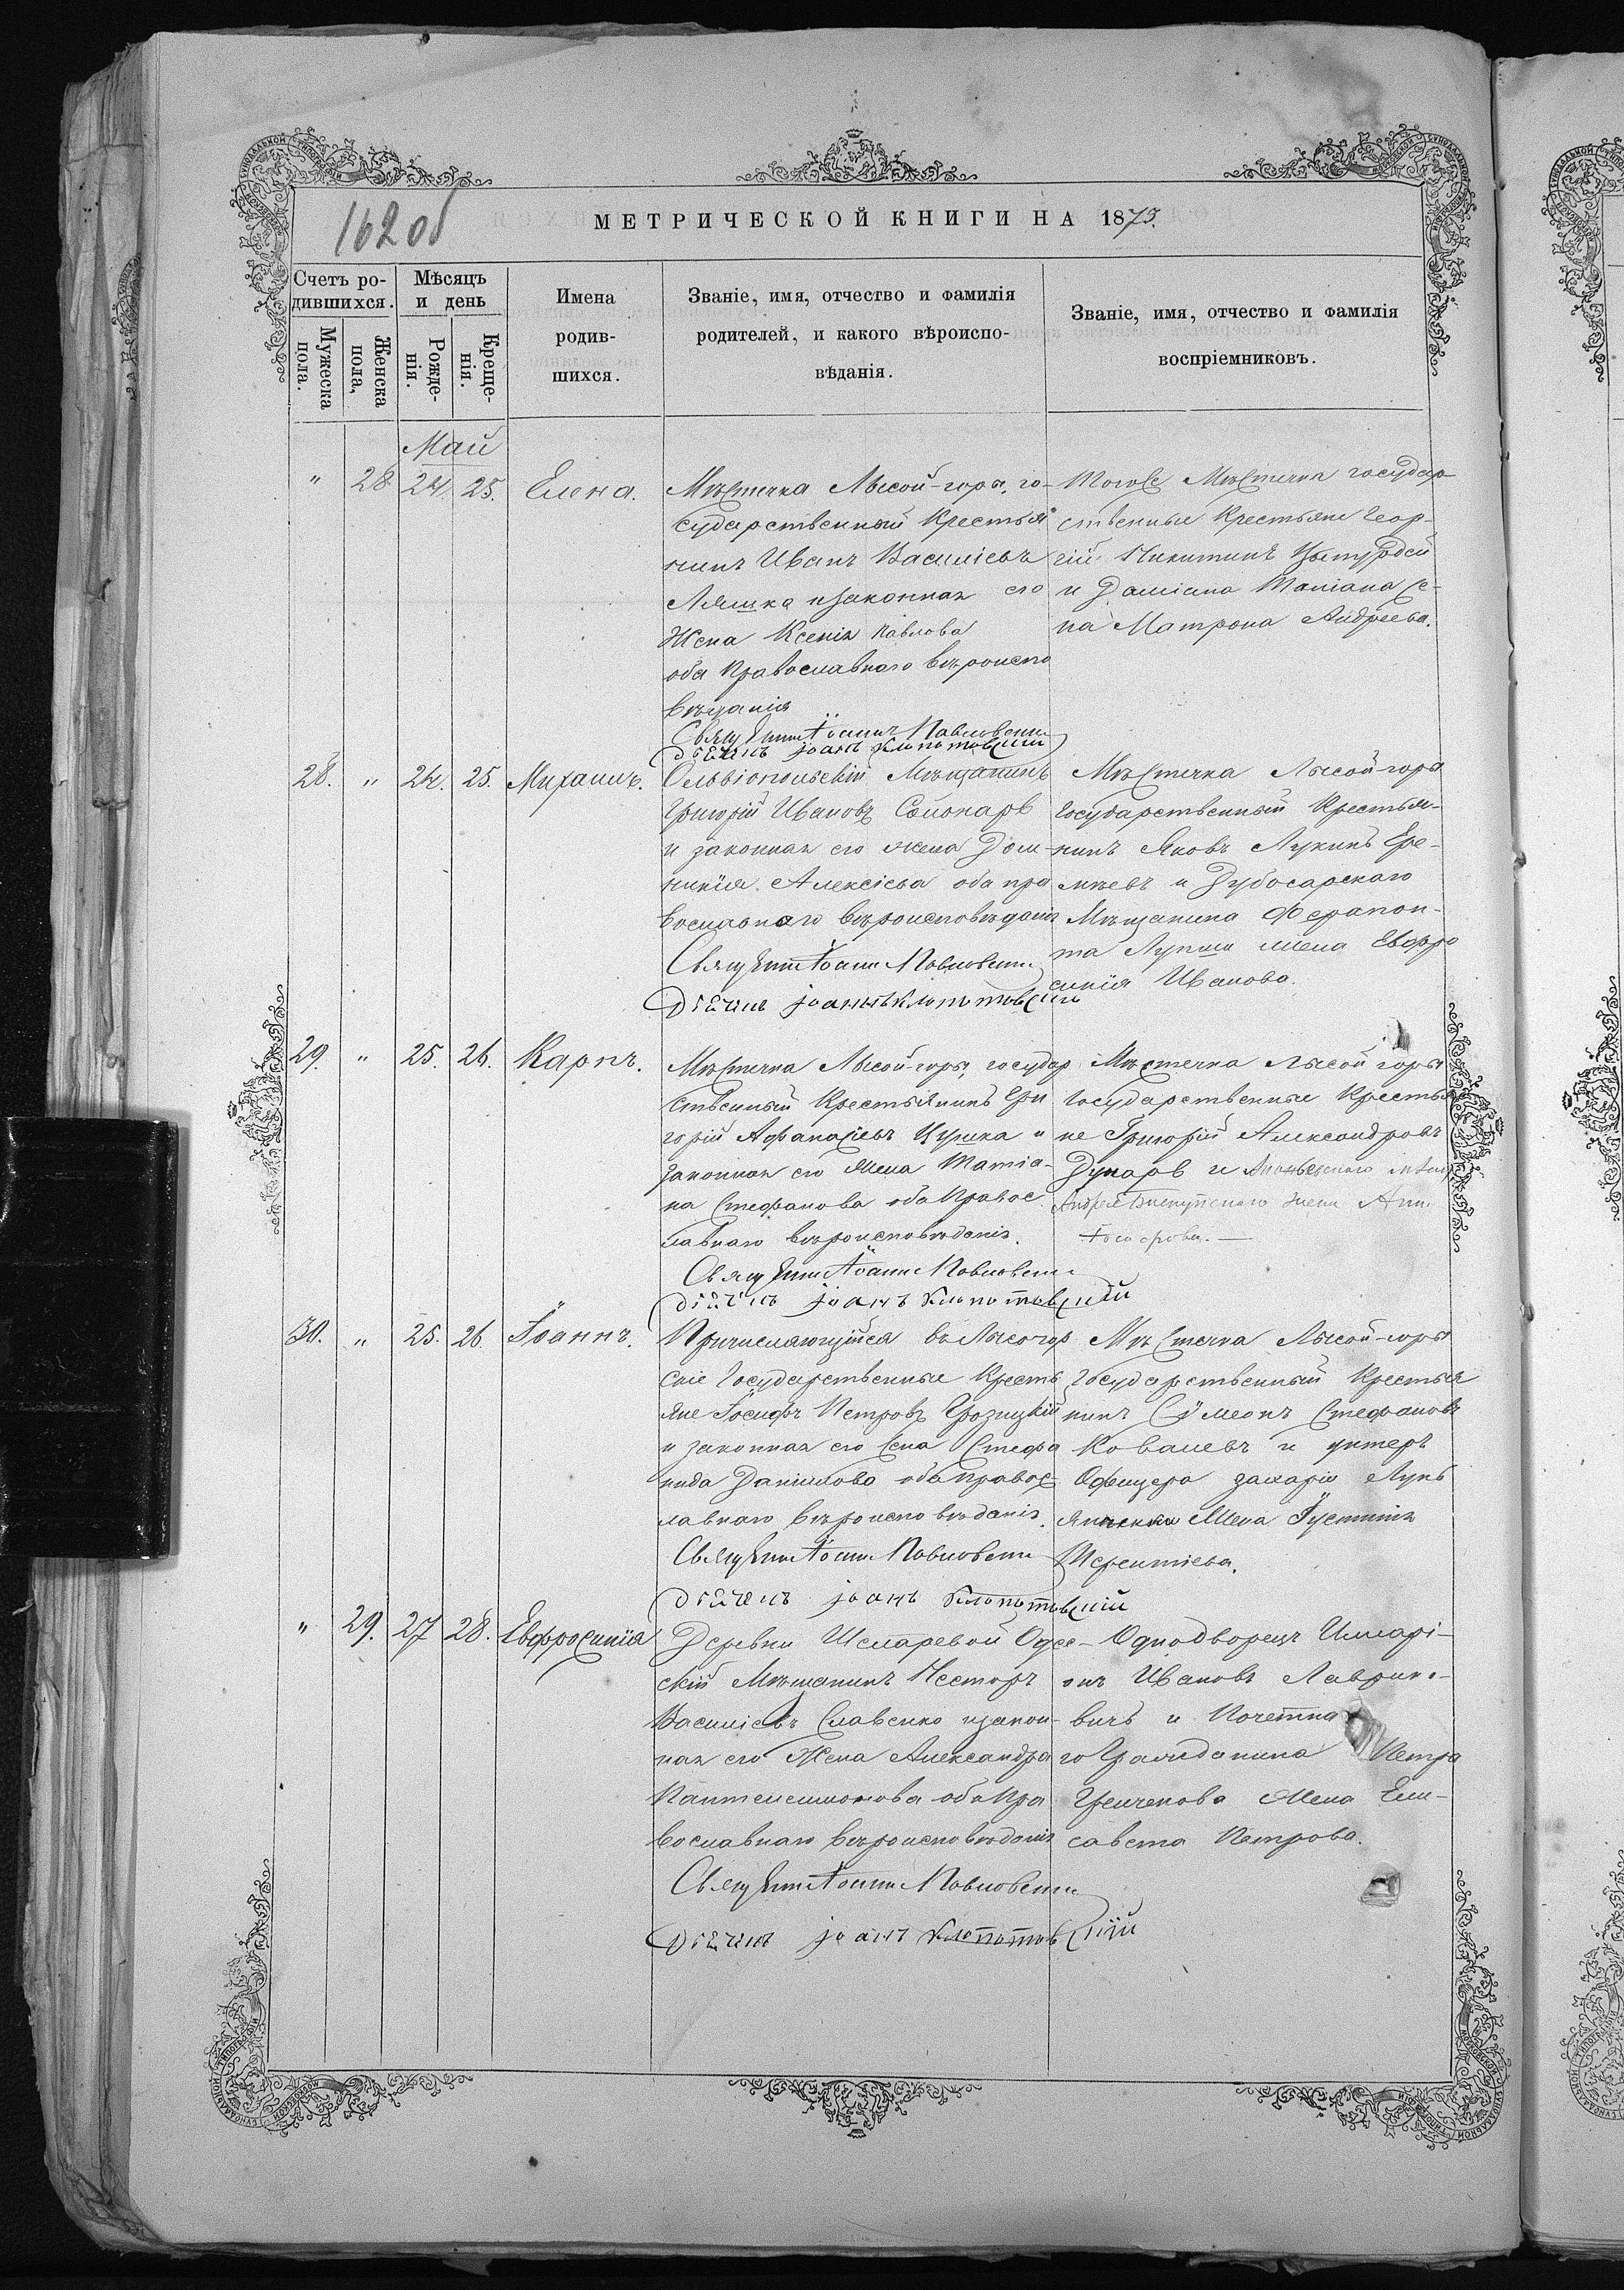 162 об
МЕТРИЧЕСКОЙ КНИГИ НА 1873.
Счетъ ро-
дившихся.
Мужеска
пола.
Женска
пола,
Мѣсяцъ
и день
Рожде-
нія.
Креще-
нія.
Имена
родив-
шихся.
Званіе, имя, отчество и фамилія
родителей, и какого вѣроиспо-
вѣданія.
Званіе, имя, отчество и фамилія
воспріемниковъ.
Май
" 28 24. 25. Елена.
Мѣстечка Лысой-горы, го-
сударственный Крестья
нинъ Иванъ Василіевъ
Ляшка и законная его
Жена Ксенія Павлова
оба Православнаго вѣроиспо
вѣданія
Священникъ Іоаннъ Павловскій
дьячекъ Іоанъ Клопотовскій
Того же Мѣстечка государ
ственные Крестьяне Геор-
гій Никитинъ
и Даміана же-
на Матрона Андреева.
28. " 24. 25. Михаилъ.
Ольвіопольскій Мѣщанинъ
Григорій Ивановъ
и законная его жена Дом-
никія Алексіева оба пра
вославнаго вѣроисповѣданія
Священникъ Іоаннъ Павловскій
дьячекъ Іоаннъ Клопотовскій
Мѣстечка Лысой-горы
Государственный Крестья-
нинъ Яковъ Лукинъ Ере-
мѣевъ и Дубосарскаго
Мѣщанина Ферапон-
та Лупши жена Евфро
синія Иванова.
29. " 25. 26. Карпъ.
Мѣстечка Лысой-горы государ
ственный Крестьянинъ Гри
горій Афанасіевъ и
законная его жена Татіа-
на Стефанова оба Правос
лавнаго вѣроисповѣданія.
Священникъ Іоаннъ Павловскій
дьячекъ Іоанъ Клопотовскій
Мѣстечка Лысой горы
Государственные Крестья
не Григорій Александровъ
и Ананьевскаго
Андрея жена Анна
30. " 25. 26. Іоаннъ.
Причисляющійся въ Лысогор
скіе Государственные Кресть
яне Іосифъ Петровъ Грозицкій
и законная его жена Стефа
нида Данилова оба правос
лавнаго вѣроисповѣданія.
Священникъ Іоаннъ Павловскій
дьячекъ Іоанъ Клопотовскій
Мѣстечка Лысой-горы
Государственный Крестья
нинъ Сѵмеонъ Стефановъ
Ковалевъ и унтеръ
Офицера Захарія Лукъ
яненка Жена Іустинія
Терентіева.
" 29. 27 28. Евфросинія
Деревни Одес-
скій Мѣщанинъ Несторъ
Василіевъ Славенко и закон-
ная его Жена Александра
Пантелеимонова оба Пра
вославнаго вѣроисповѣданія
Священникъ Іоаннъ Павловскій
дьячекъ Іоанъ Клопотовскій
Однодворецъ Иллари-
онъ Ивановъ Лаврино-
вичъ и Почетна
го Гражданина Петра
жена Ели-
савета Петрова.